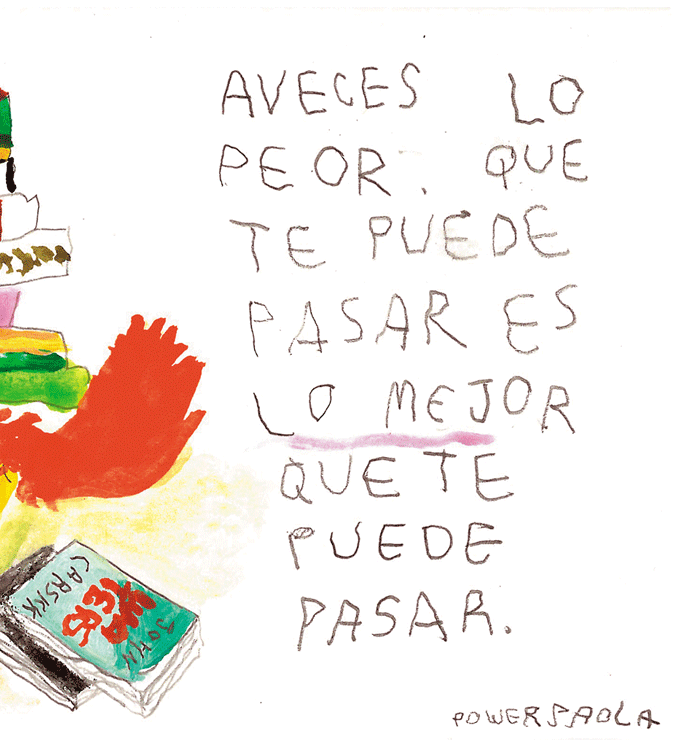 AVECES LO
PEOR. QUE
TE PUEDE
PASAR ES
LO MEJOR
QUE TE
PUEDE
PASAR.
CARSKI
JOHN
POWERPAOLA